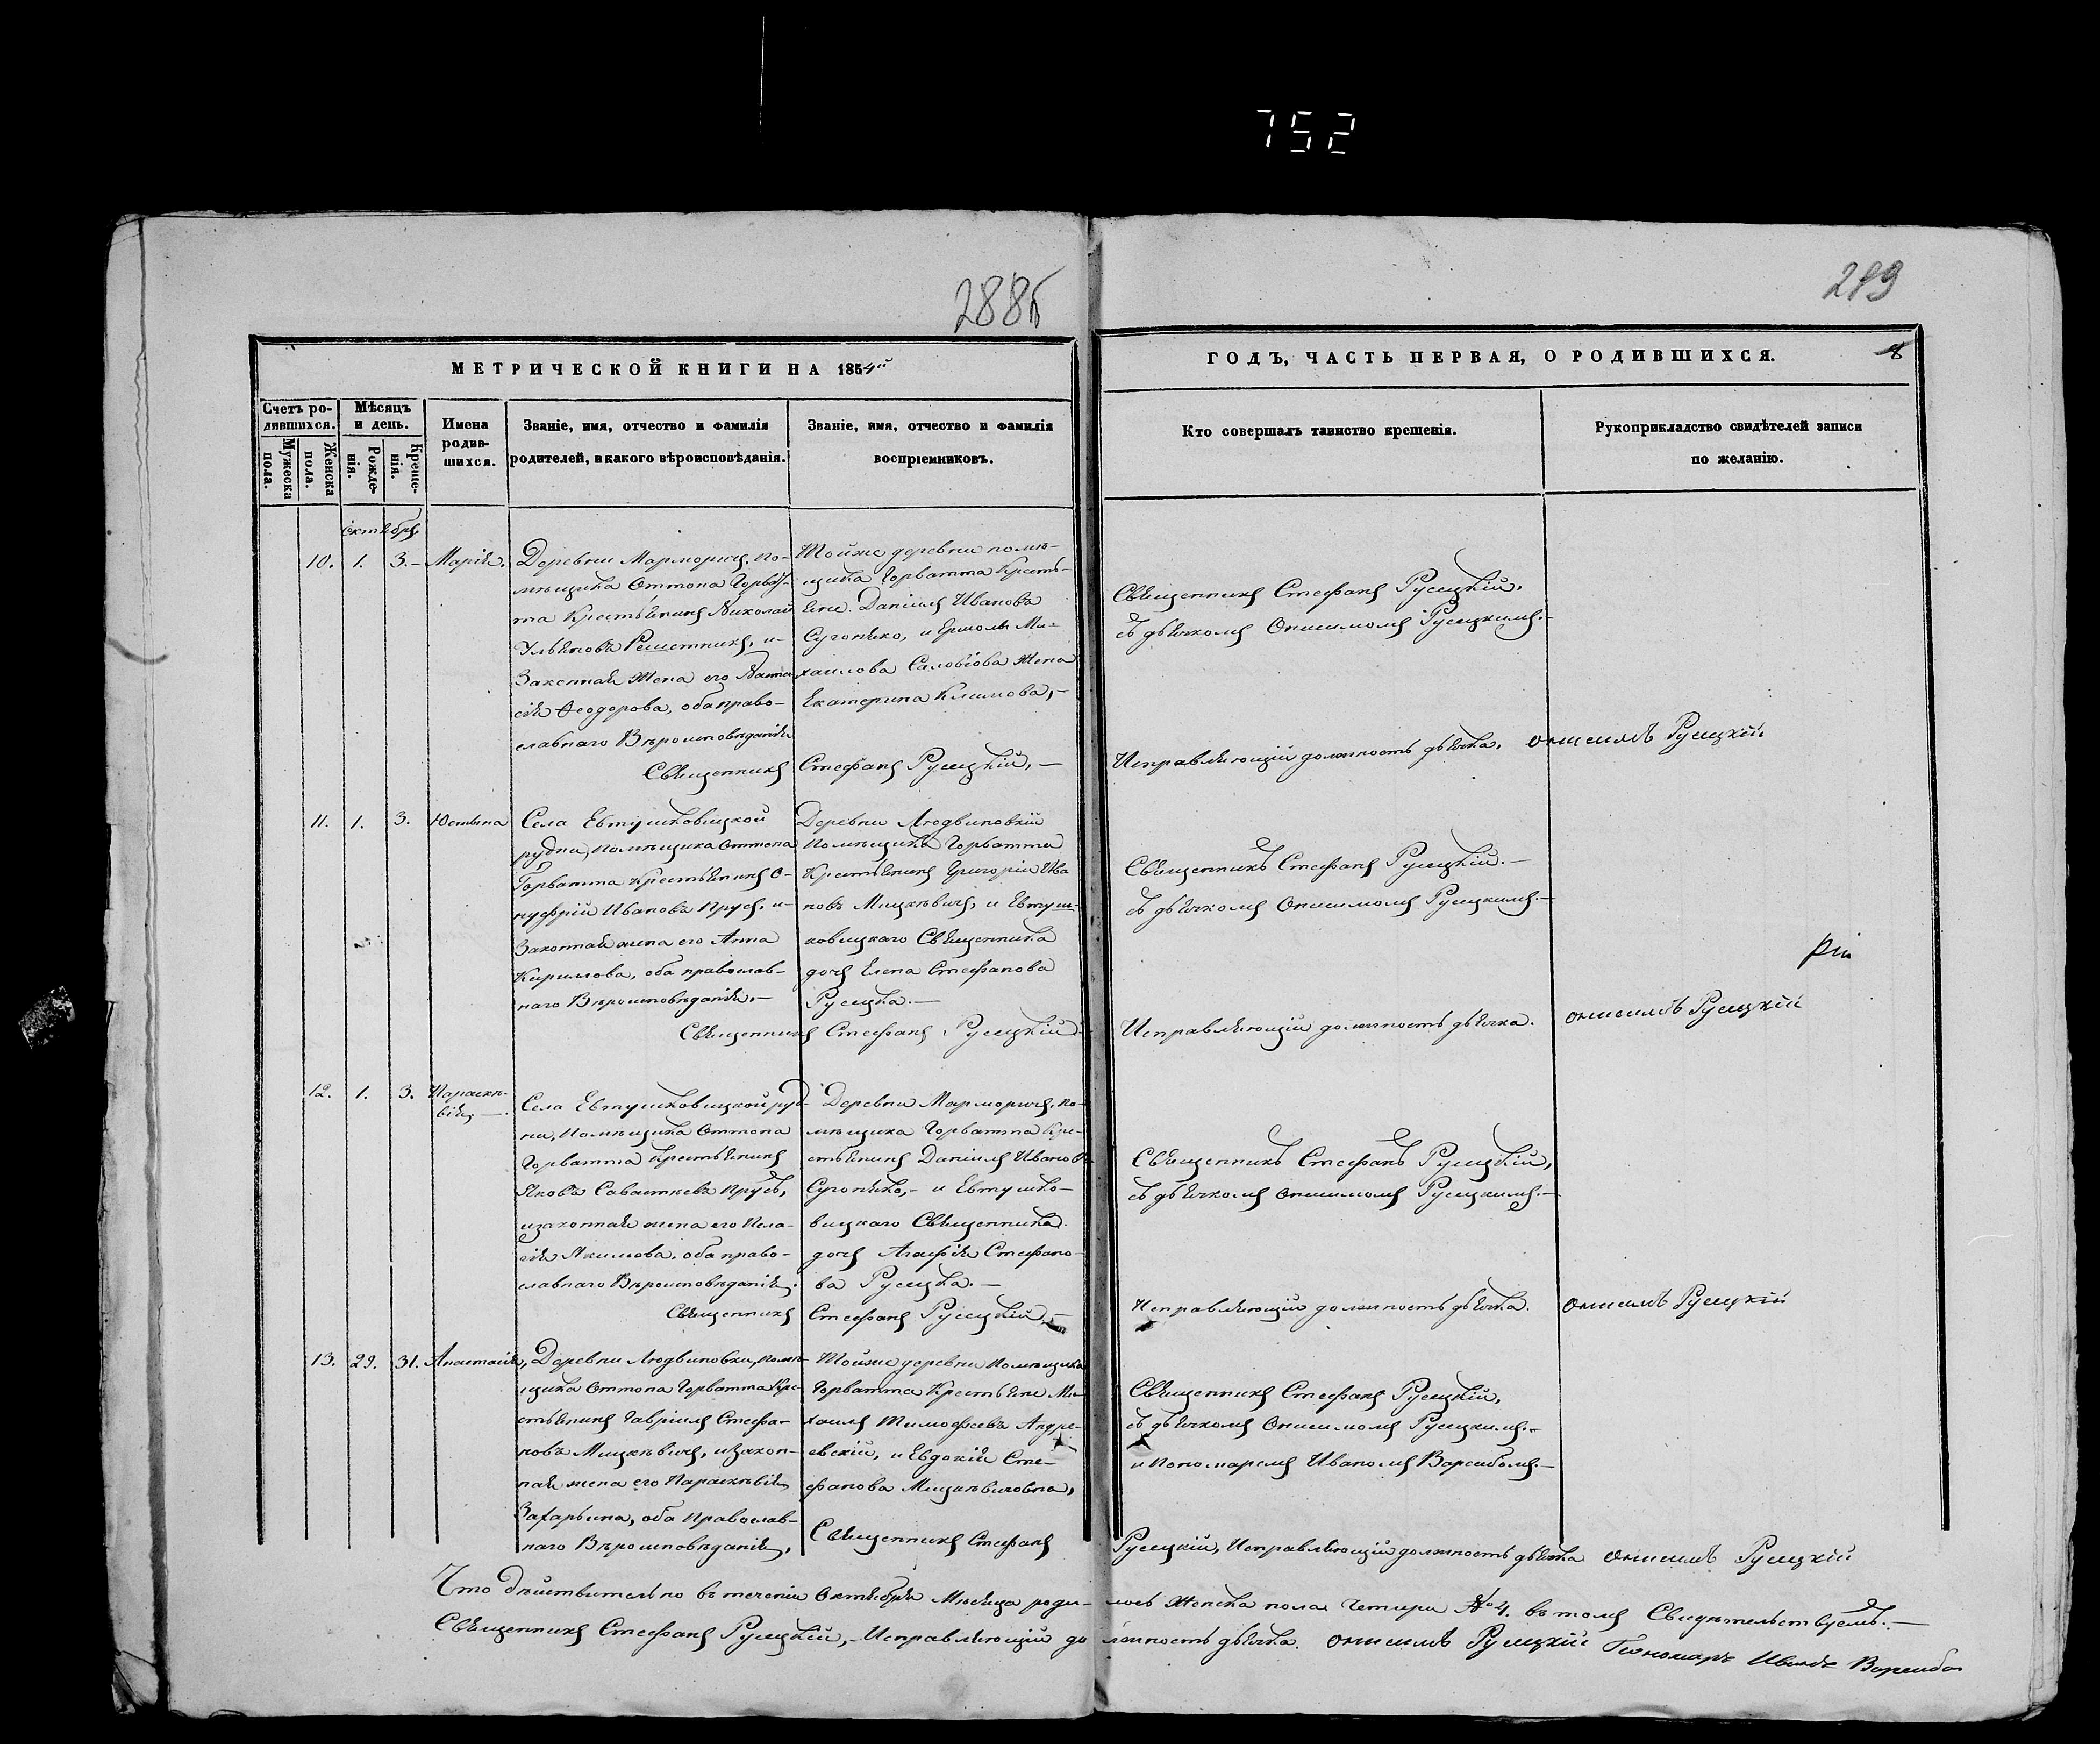 752
288б
289
МЕТРИЧЕСКОЙ КНИГИ НА 1854й
ГОДЪ, ЧАСТЬ ПЕРВАЯ, О РОДИВШИХСЯ.
8
Счетъ ро-
дившихся.
Мужеска
пола.
Женска
пола.
Мѣсяцъ
и день.
Рожде-
нія.
Креще-
нія.
Имена
родив-
шихся.
Званіе, имя, отчество и фамилія
родителей, и какого вѣроисповѣданія.
Званіе, имя, отчество и фамилія
воспріемниковъ.
Кто совершалъ таинство крещенія.
Рукоприкладство свидѣтелей записи
по желанію.
октября
10. 1. 3. Марія.
Деревни Марморичъ, по-
мѣщика Оттона Горват-
та Крестьянинъ Николай
Ульяновъ Решетникъ, и
Законная Жена его
Феодорова, оба право-
славнаго Вѣроисповѣданія
Тойже деревни помѣ-
щика Горватта Кресть-
яне. Даніилъ Ивановъ
Сугоняко, и Ермолы Ми-
хаилова Саловіова Жена
Екатерина Климова,-
Священникъ Стефанъ Русецкій,-
Священникъ Стефанъ Русецкій,
съ дьячкомъ Онисимомъ Русецкимъ.-
Исправляющій должность дьячка. Онисимъ Русецкій
11. 1. 3. Юстина
Села Евтушковицкой
рудни, Помѣщика Оттона
Горватта Крестьянинъ О-
нуфрій Ивановъ Прусъ, и
Законная жена его Анна
Киримова, оба православ-
наго Вѣроисповѣданія.-
Деревни Людвиновкій
Помѣщика Горватта
Крестьянинъ Григорій Ива
новъ Мицкѣвичъ, и Евтуш-
ковицкаго Священника
дочь Елена Стефанова
Русецка.-
Священникъ Стефанъ Русецкій
Священникъ Стефанъ Русецкій.-
съ дьячкомъ Онисимомъ Русецкимъ.-
Исправляющій должность дьячка. Онисимъ Русецкій
12. 1. 3. Параскѣ-
вія,-
Села Евтушковицкой руд-
ни, Помѣщика Оттона
Горватта Крестьянинъ
Яковъ Саваткевъ Прусъ,
изаконная жена его Пела-
гія Якимова, оба право-
славнаго Вѣроисповѣданія.
Деревни Марморичъ, по-
мѣщика Горватта Кре-
стьянинъ Даніилъ Ивановъ
Сугоняко,- и Евтушко-
вицкаго Священника
дочь Агафія Стефано-
ва Русецка.-
Священникъ Стефанъ Русецкій,-
Священникъ Стефанъ Русецкій,
съ дьячкомъ Онисимомъ Русецкимъ.-
Исправляющій должность дьячка. Онисимъ Русецкій
13. 29. 31. Анастасія,
Деревни Людвиновки, помѣ-
щика Оттона Горватта Кре-
стьянинъ Гавріилъ Стефа-
новъ Мицкѣвичъ, изакон-
ная жена его Параскѣвія
Захарьина, оба Православ-
наго Вѣроисповѣданія,
Тойже деревни Помѣщика
Горватта Крестьяне Ми-
хаилъ Тимофеевъ Андре-
евскій, и Евдокія Сте-
фанова Мицкѣвичовна,
Священникъ Стефанъ Русецкій,
съ дьячкомъ Онисимомъ Русецкимъ.-
и Пономаремъ Иваномъ Варсибомъ.-
Священникъ Стефанъ Русецкій, Исправляющій должность дьячка Онисимъ Русецкій
Что дѣйствительно въ теченіи Октября Мѣсяца роди-лось Женска пола Четири № 4. въ томъ Свидѣтельствуемъ.-
Священникъ Стефанъ Русецкій,- Исправляющій должность дьячка. Онисимъ Русецкій Пономаръ Иванъ